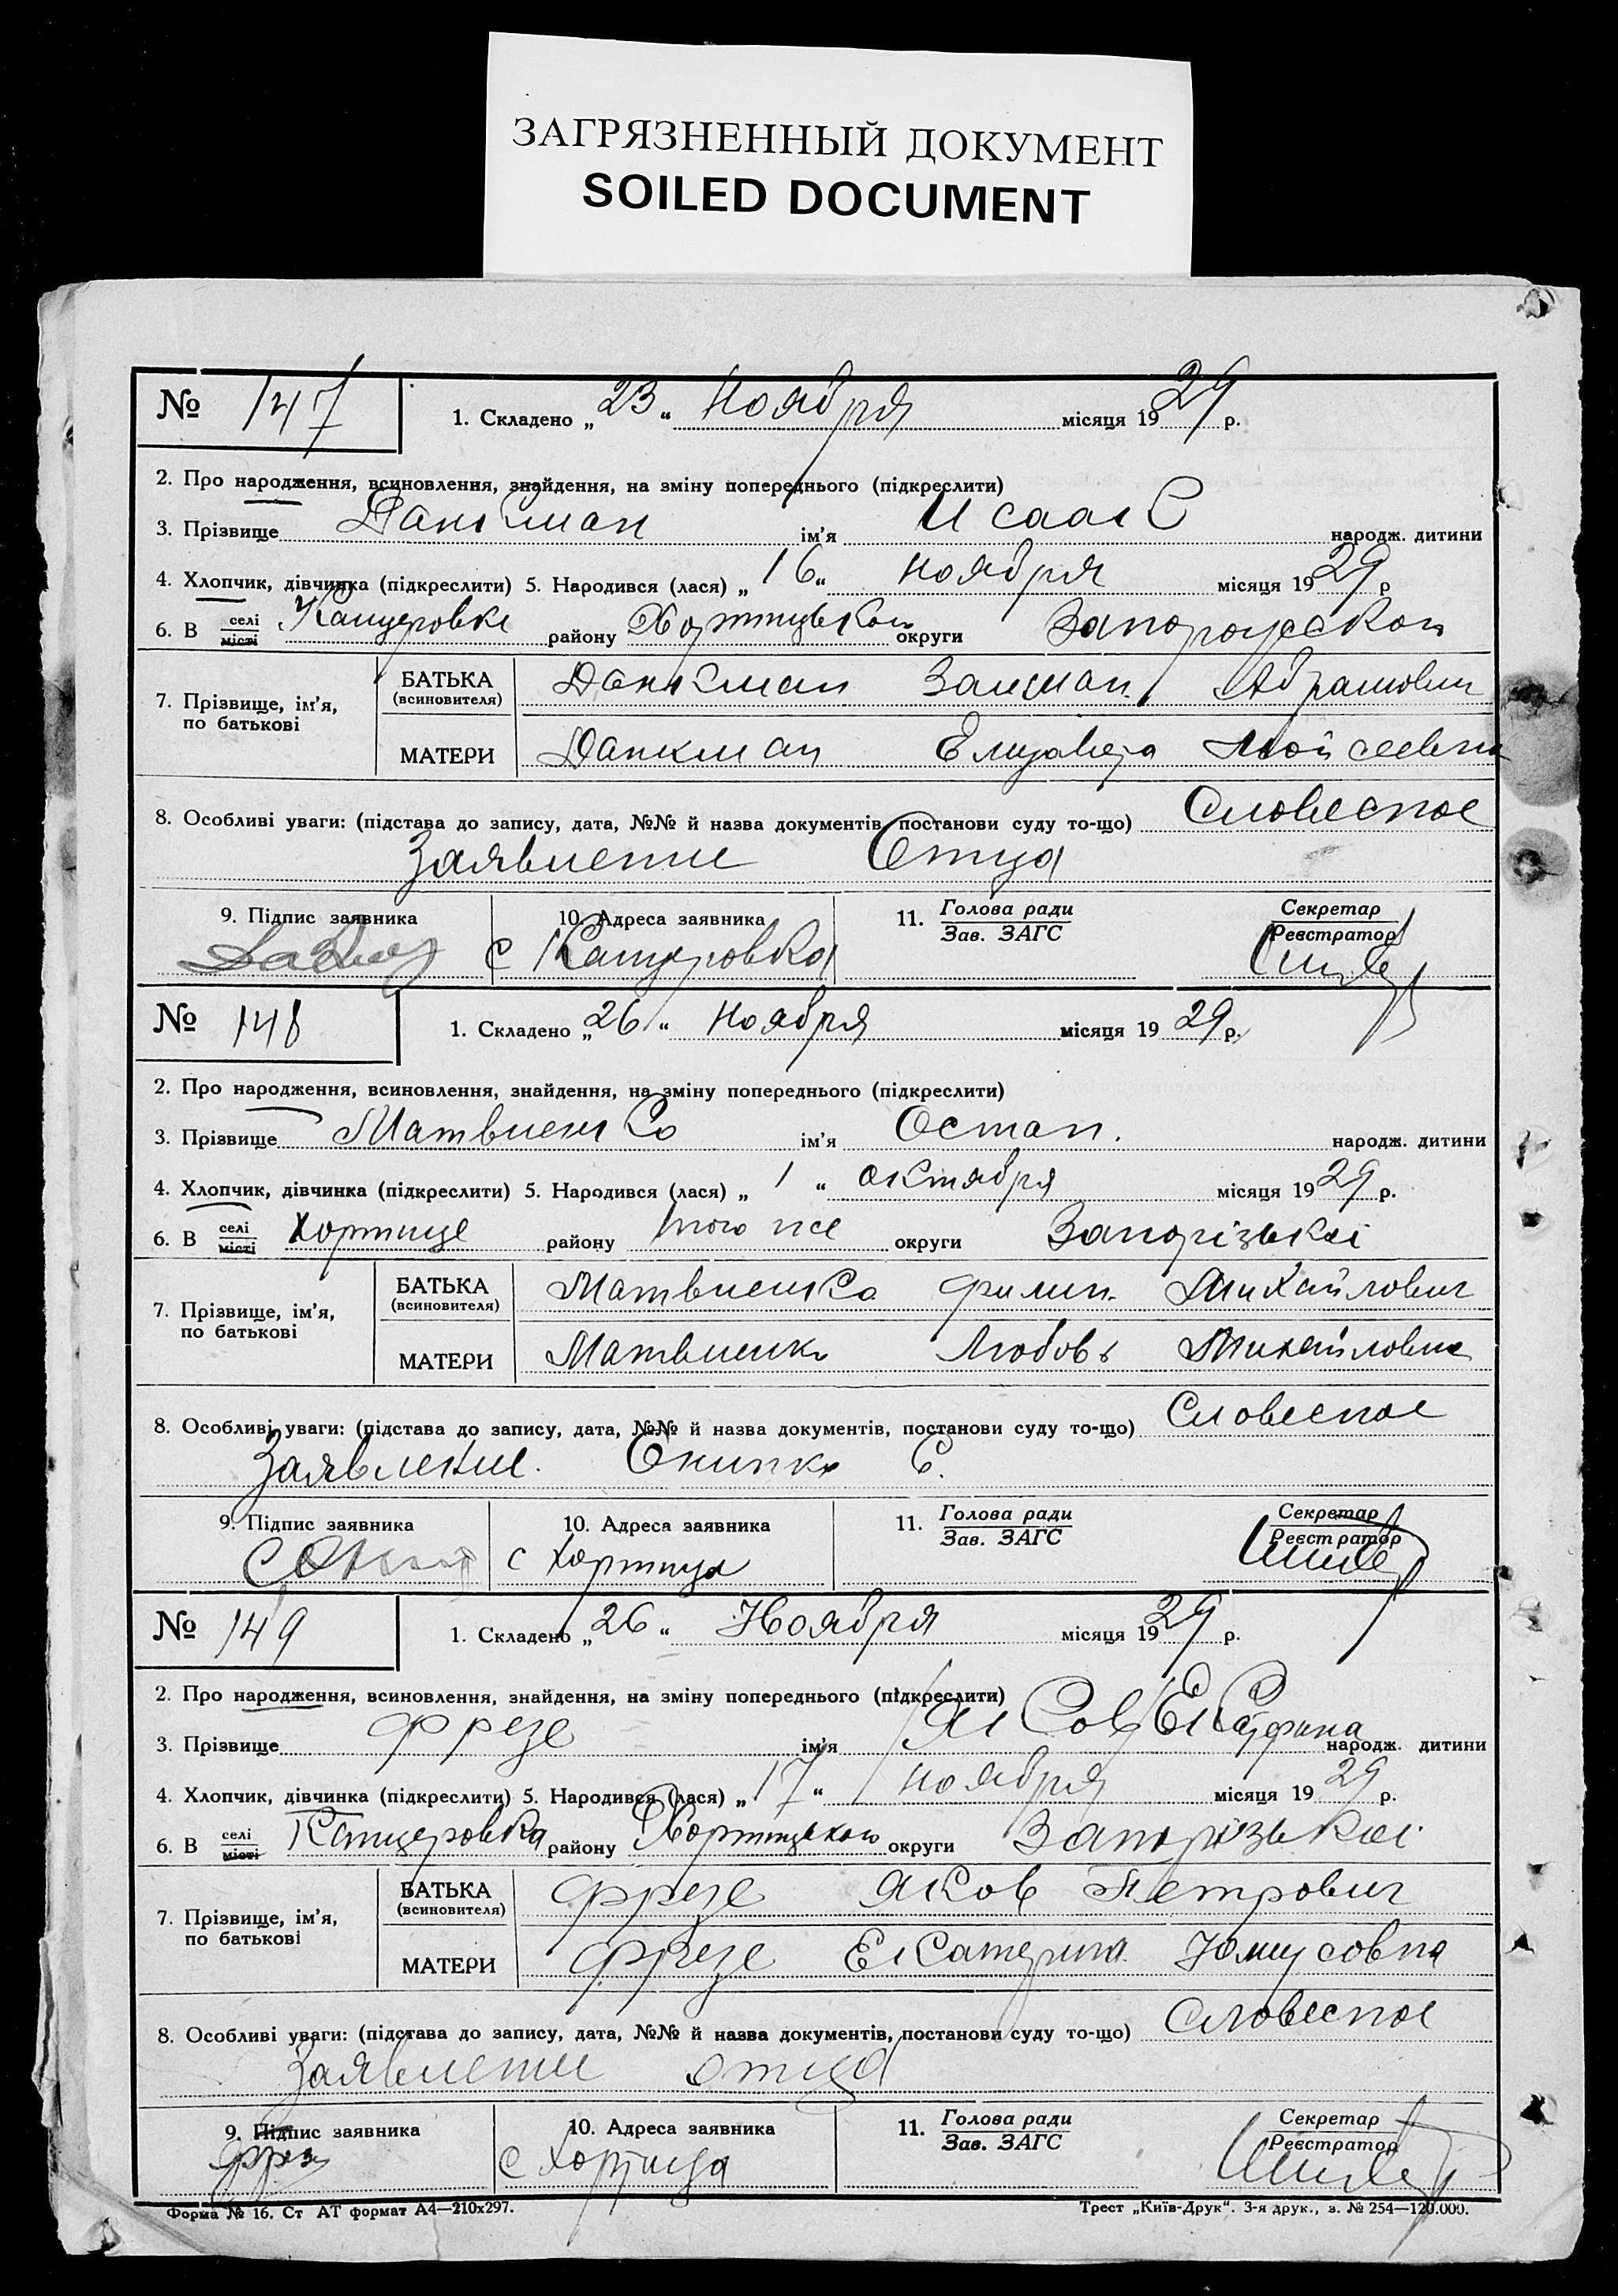 ЗАГРЯЗНЕННЫЙ ДОКУМЕНТ
SOILED DOCUMENT
№ 147 1. Складено „ 23 “ Ноября місяця 1929 р.
2. Про народження, всиновлення, знайдення, на зміну попереднього (підкреслити)
3. Прізвище Данкман ім'я Исаак народж. дитини
4. Хлопчик, дівчинка (підкреслити) 5. Народився (лася) „ 16 “ ноября місяця 1929 р
6. В селі місті Канцеровке району Хортицькои округи Запорожскои
7. Прізвище, ім'я, по батькові
БАТЬКА (всиновителя) Данкман Залман Абрамович
МАТЕРИ Данкман Елизавета Мойсеевна
8. Особливі уваги: (підстава до запису, дата, №№ й назва документів, постанови суду то-що) Словесное
Заявление Отца
9. Підпис заявника 10. Адреса заявника 11. Голова ради Зав. ЗАГС Секретар Реєстратор
с Канцеровка
№ 148 1. Складено „ 26 “ Ноября місяця 1929 р.
2. Про народження, всиновлення, знайдення, на зміну попереднього (підкреслити)
3. Прізвище Матвиенко ім'я Остап. народж. дитини
4. Хлопчик, дівчинка (підкреслити) 5. Народився (лася) „ 1 “ октября місяця 1929 р.
6. В селі місті Хортице району того же округи Запорізькоі
7. Прізвище, ім'я, по батькові
БАТЬКА (всиновителя) Матвиенко Филип Михайлович
МАТЕРИ Матвиенко Любовь Михайловна
8. Особливі уваги: (підстава до запису, дата, №№ й назва документів, постанови суду то-що) Словесное
Заявление. С.
9. Підпис заявника 10. Адреса заявника 11. Голова ради Зав. ЗАГС Секретар Реєстратор
с Хортица
№ 149 1. Складено „ 26 “ Ноября місяця 1929 р.
2. Про народження, всиновлення, знайдення, на зміну попереднього (підкреслити)
3. Прізвище Фрезе ім'я Яков Екатерина народж. дитини
4. Хлопчик, дівчинка (підкреслити) 5. Народився (лася) „ 17 “ ноября місяця 1929 р.
6. В селі місті Канцеровка району Хортицькои округи Запорізькоі
7. Прізвище, ім'я, по батькові
БАТЬКА (всиновителя) Фрезе Яков Петрович
МАТЕРИ Фрезе Екатерина
8. Особливі уваги: (підстава до запису, дата, №№ й назва документів, постанови суду то-що) Словесное
Заявление отца
9. Підпис заявника 10. Адреса заявника 11. Голова ради Зав. ЗАГС Секретар Реєстратор
Фрезе с Хортица
Форма № 16. Ст АТ формат А4—210x297. Трест „Київ-Друк“. 3-я друк., з. № 254—120.000.